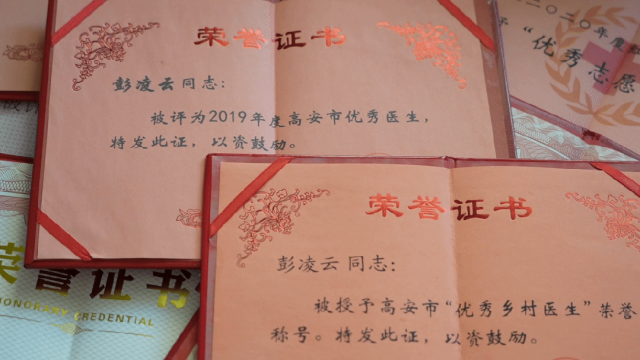 荣誉证书
彭凌云同志：
被评为2019年度高安市优秀医生，
特发此证，以资鼓励。
二〇二〇年度
予“优秀志愿
荣誉证书
彭凌云同志：
被授予高安市“优秀乡村医生”荣誉
称号。特发此证，以资鼓励。
荣誉证书
HONORARY CREDENTIAL